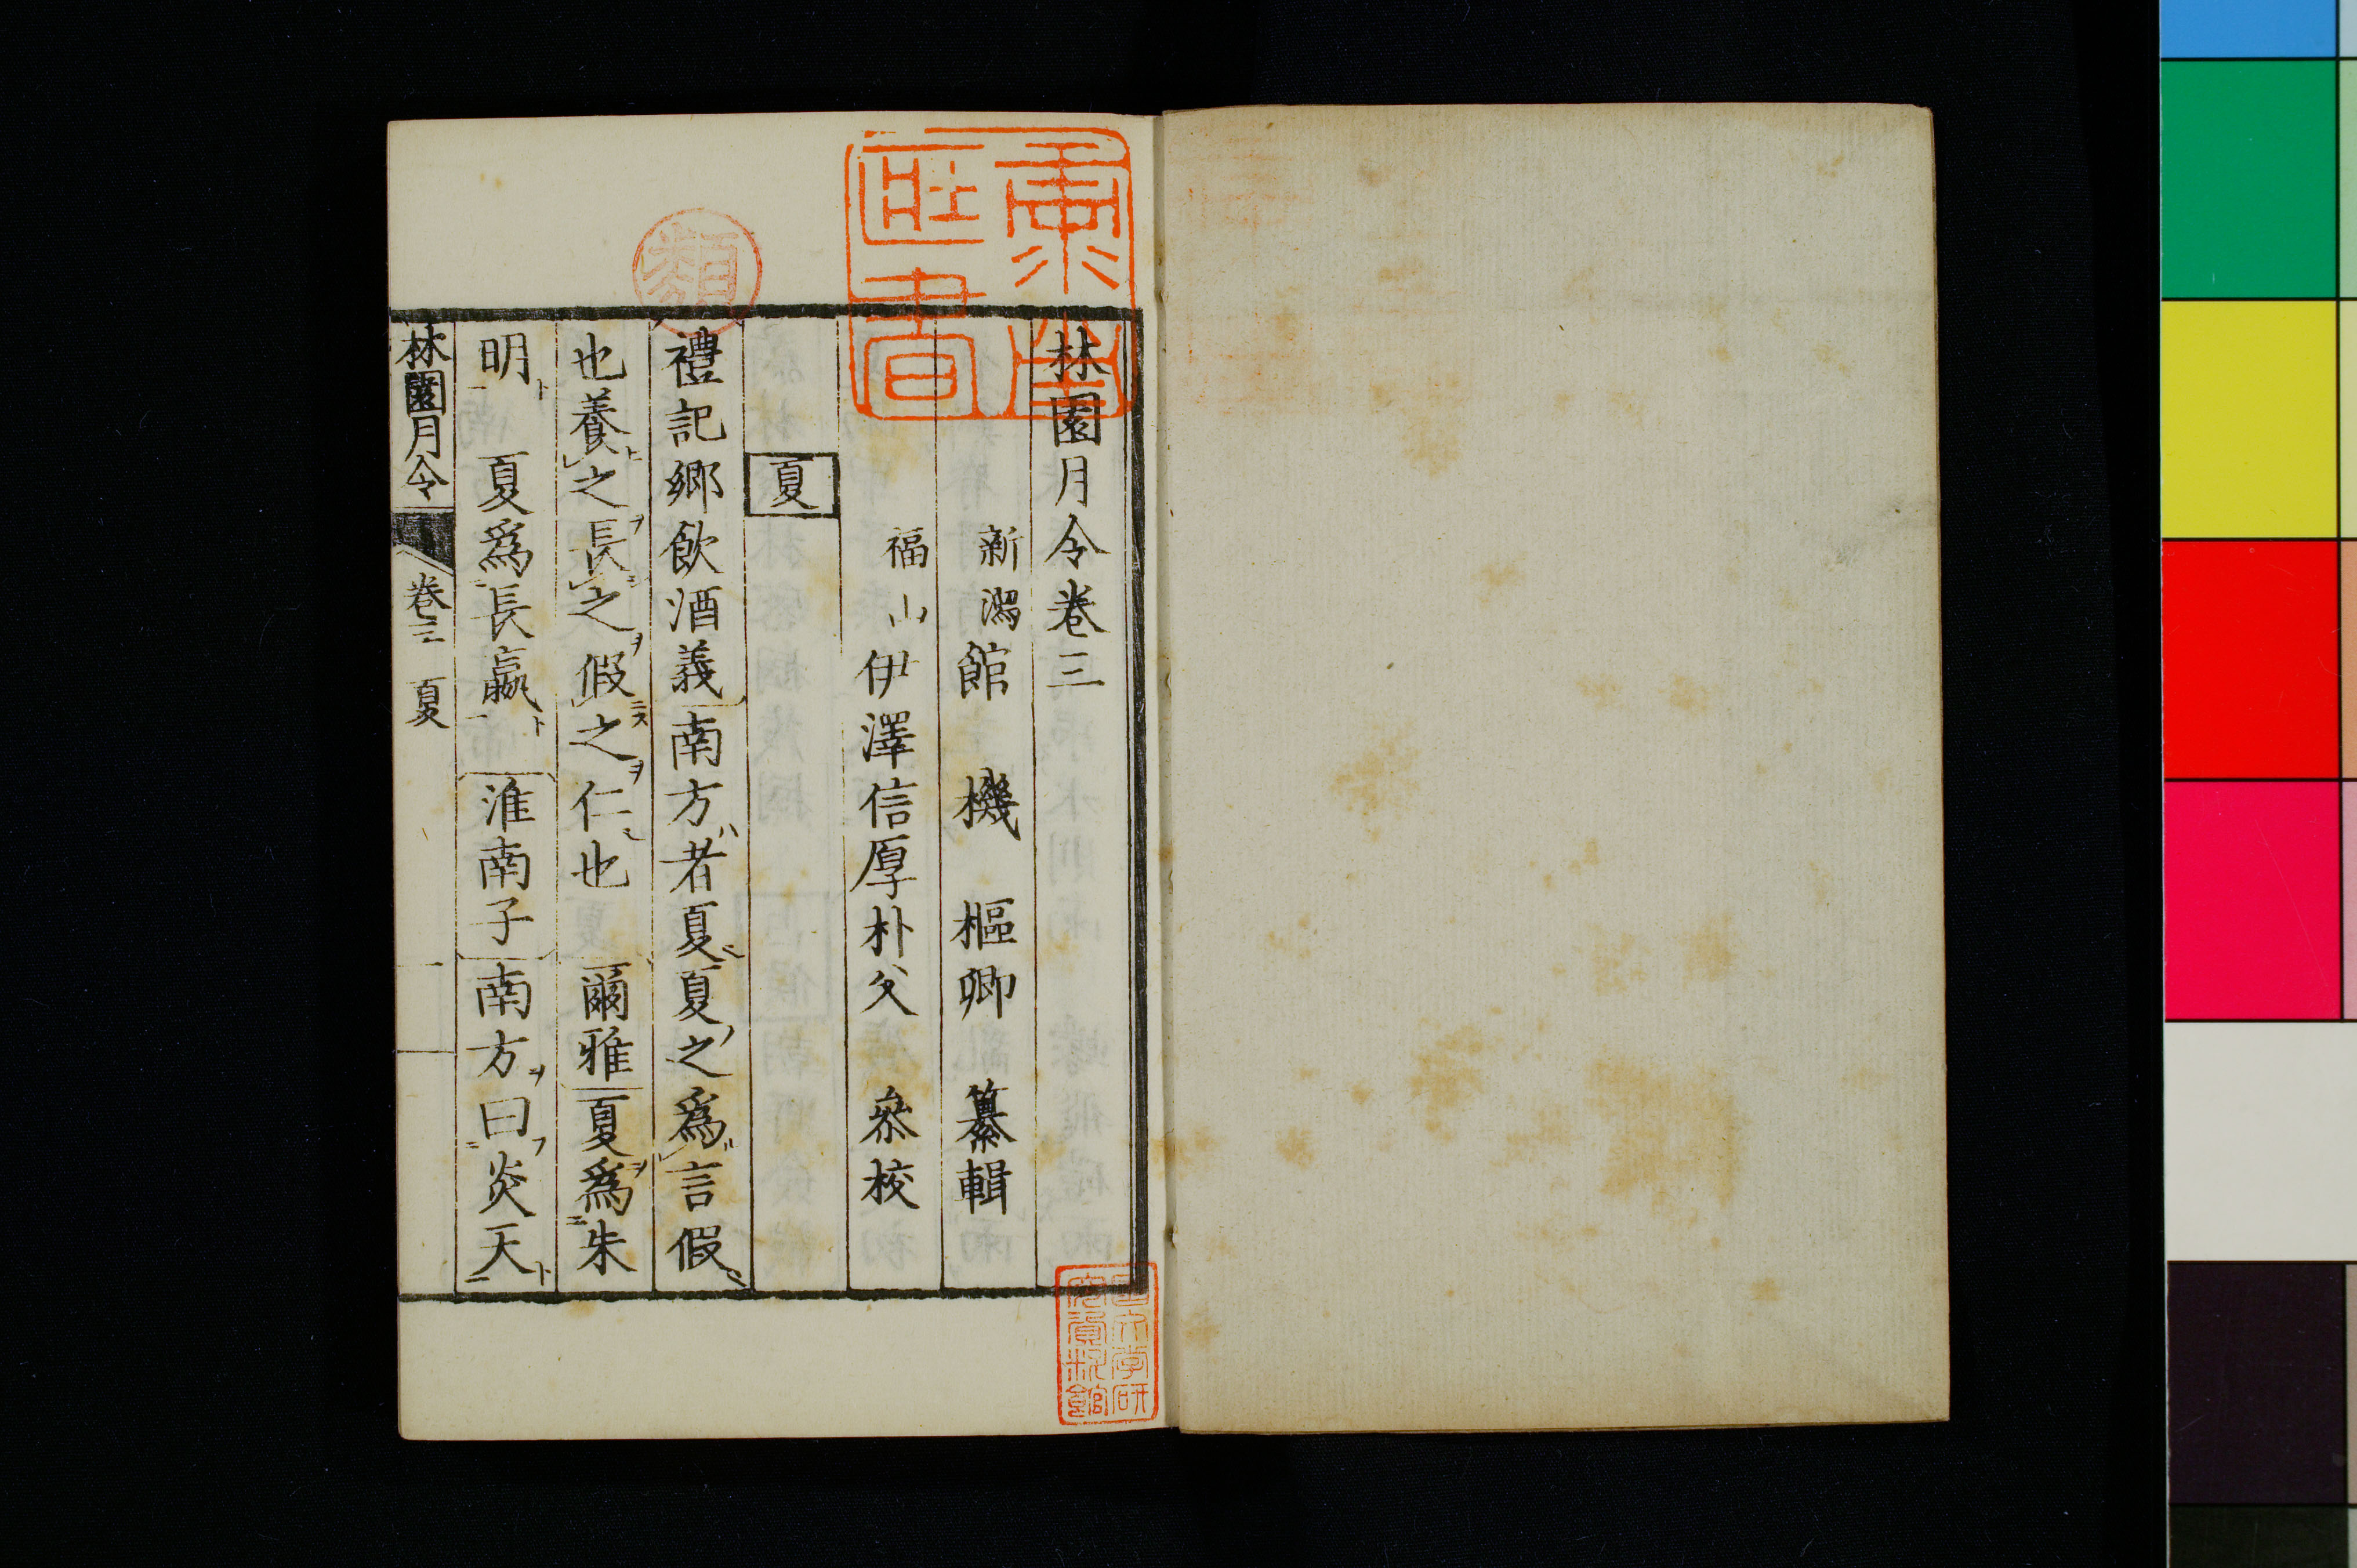 林園月令卷三
新潟 館 機 樞卿 纂輯
福山 伊澤信厚朴父 叅校
夏
禮記鄉飲酒義 南方者夏夏之為言假
也養之長之假之仁也 爾雅 夏為朱
明 夏為長嬴 淮南子 南方曰炎天
林園月令 卷三 夏
類
國文學研
究資料館